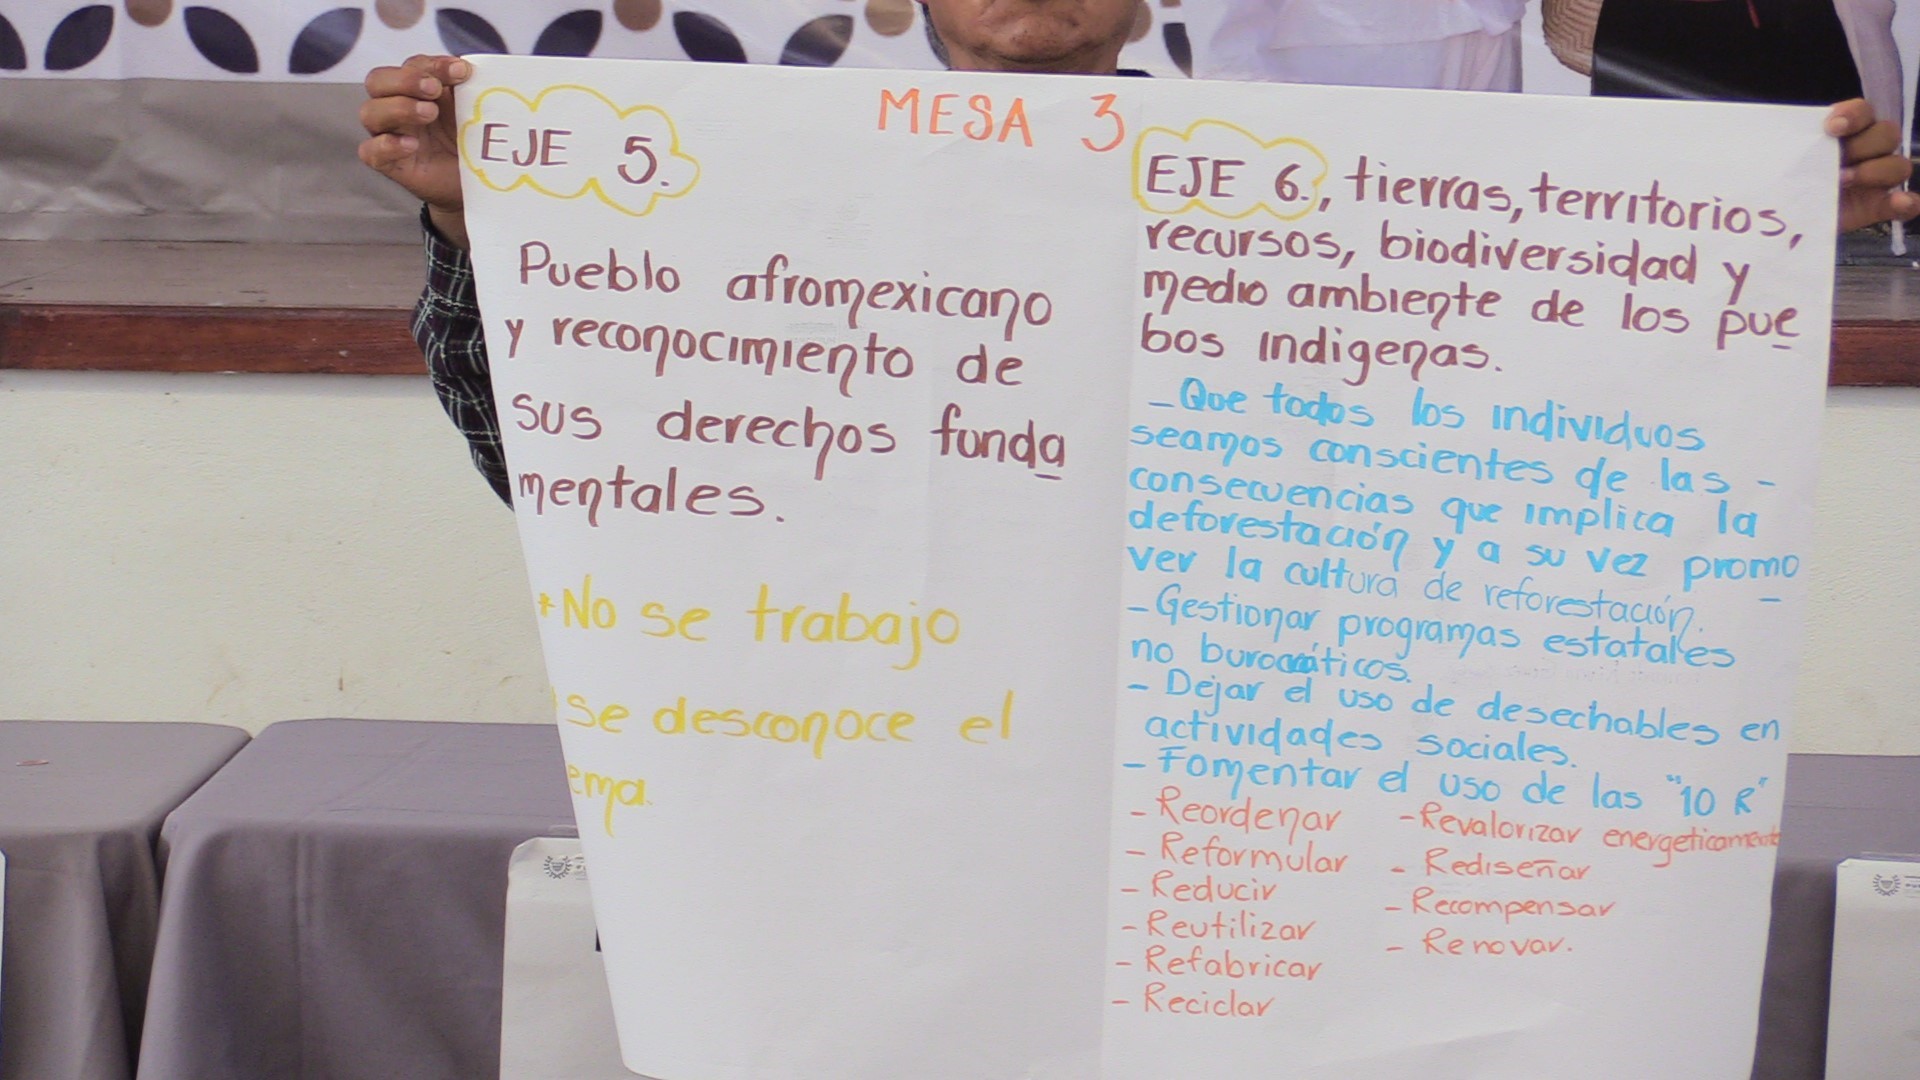 MESA 3
EJE 5.
Pueblo afromexicano
y reconocimiento de
sus derechos funda
mentales.
*No se trabajo
*se desconoce el
ema.
EJE 6., tierras, territorios,
recursos, biodiversidad y
medio ambiente de los pue
bos indigenas.
-Que todos los individuos
seamos conscientes de las -
consecuencias que implica la
deforestación y a su vez promo
ver la cultura de reforestación.
-Gestionar programas estatales
no burocráticos.
- Dejar el uso de desechables en
actividades sociales.
- Fomentar el uso de las "10 R"
- Reordenar
- Reformular
- Reducir
- Reutilizar
- Refabricar
- Reciclar
-Revalorizar energeticamente
- Rediseñar
- Recompensar
- Renovar.